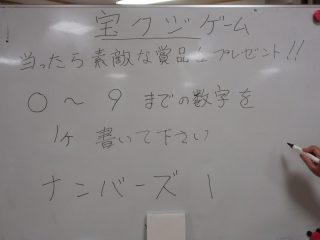 宝クジゲーム
当ったら素敵な賞品をプレゼント!!
0～9までの数字を
1ヶ書いて下さい
ナンバーズ1